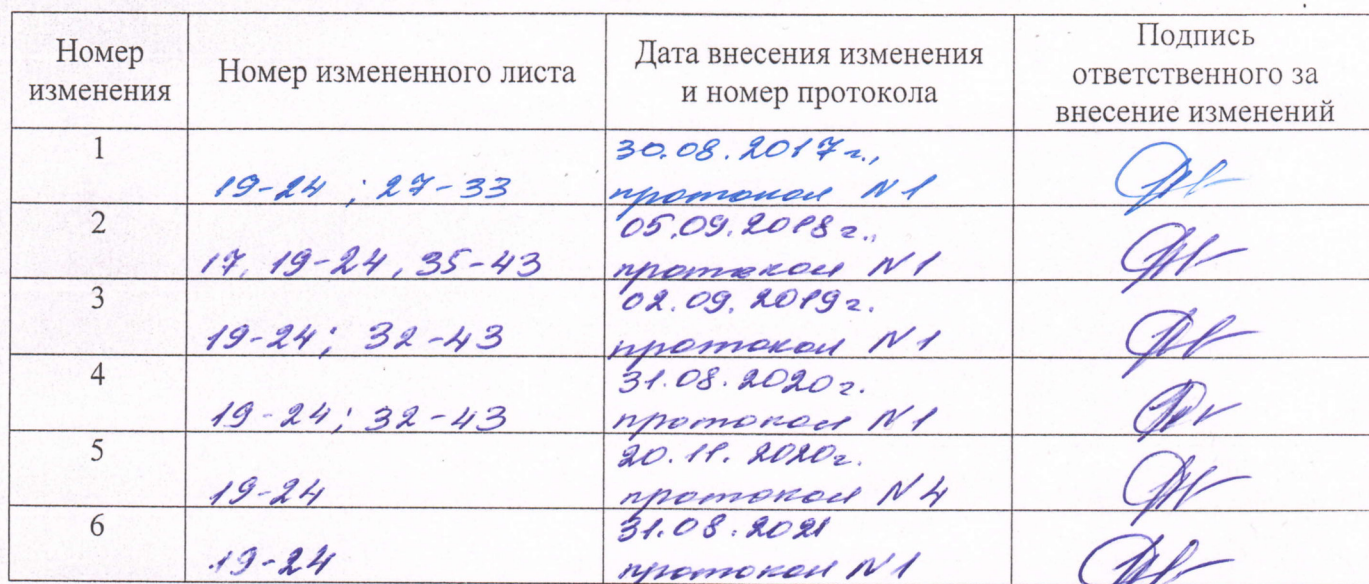 Номер изменения
Номер измененного листа
Дата внесения изменения и номер протокола
Подпись ответственного за внесение изменений
1
19-24 ; 27-33
30.08.2017 г.,
протокол N1
2
17, 19-24, 35-43
05.09.2018 г.,
протокол N1
3
19-24; 32-43
02.09.2019 г.
протокол N1
4
19-24; 32-43
31.08.2020 г.
протокол N1
5
19-24
20.11.2020 г.
протокол N4
6
19-24
31.08.2021
протокол N1